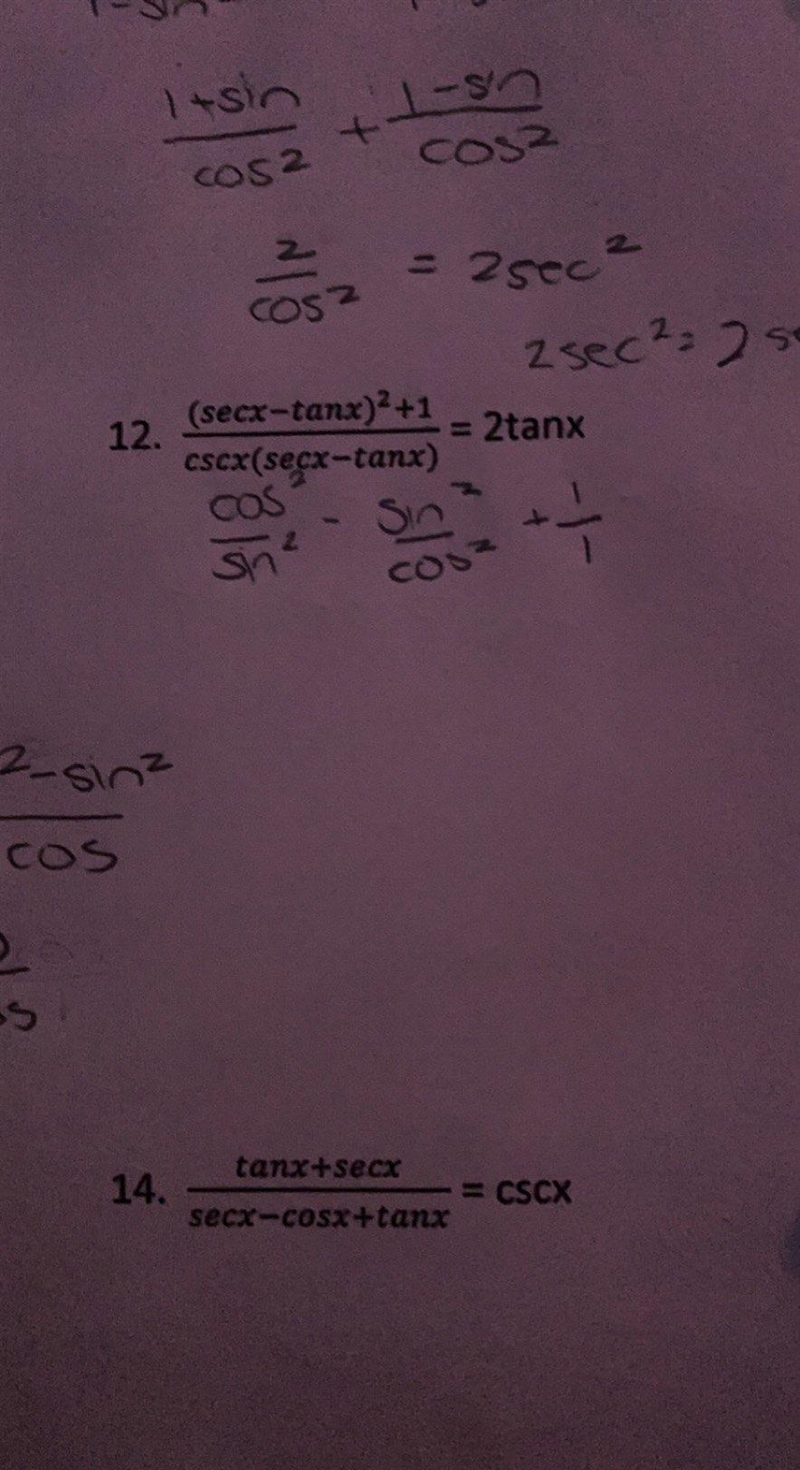 1+sin/cos² + 1-sin/cos²
2/cos² = 2sec²
2sec² = 2
12. (secx−tanx)²+1/cscx(secx−tanx) = 2tanx
cos²/sin² - sin²/cos² + 1/1
²-sin²/cos
14. tanx+secx/secx−cosx+tanx = cscx